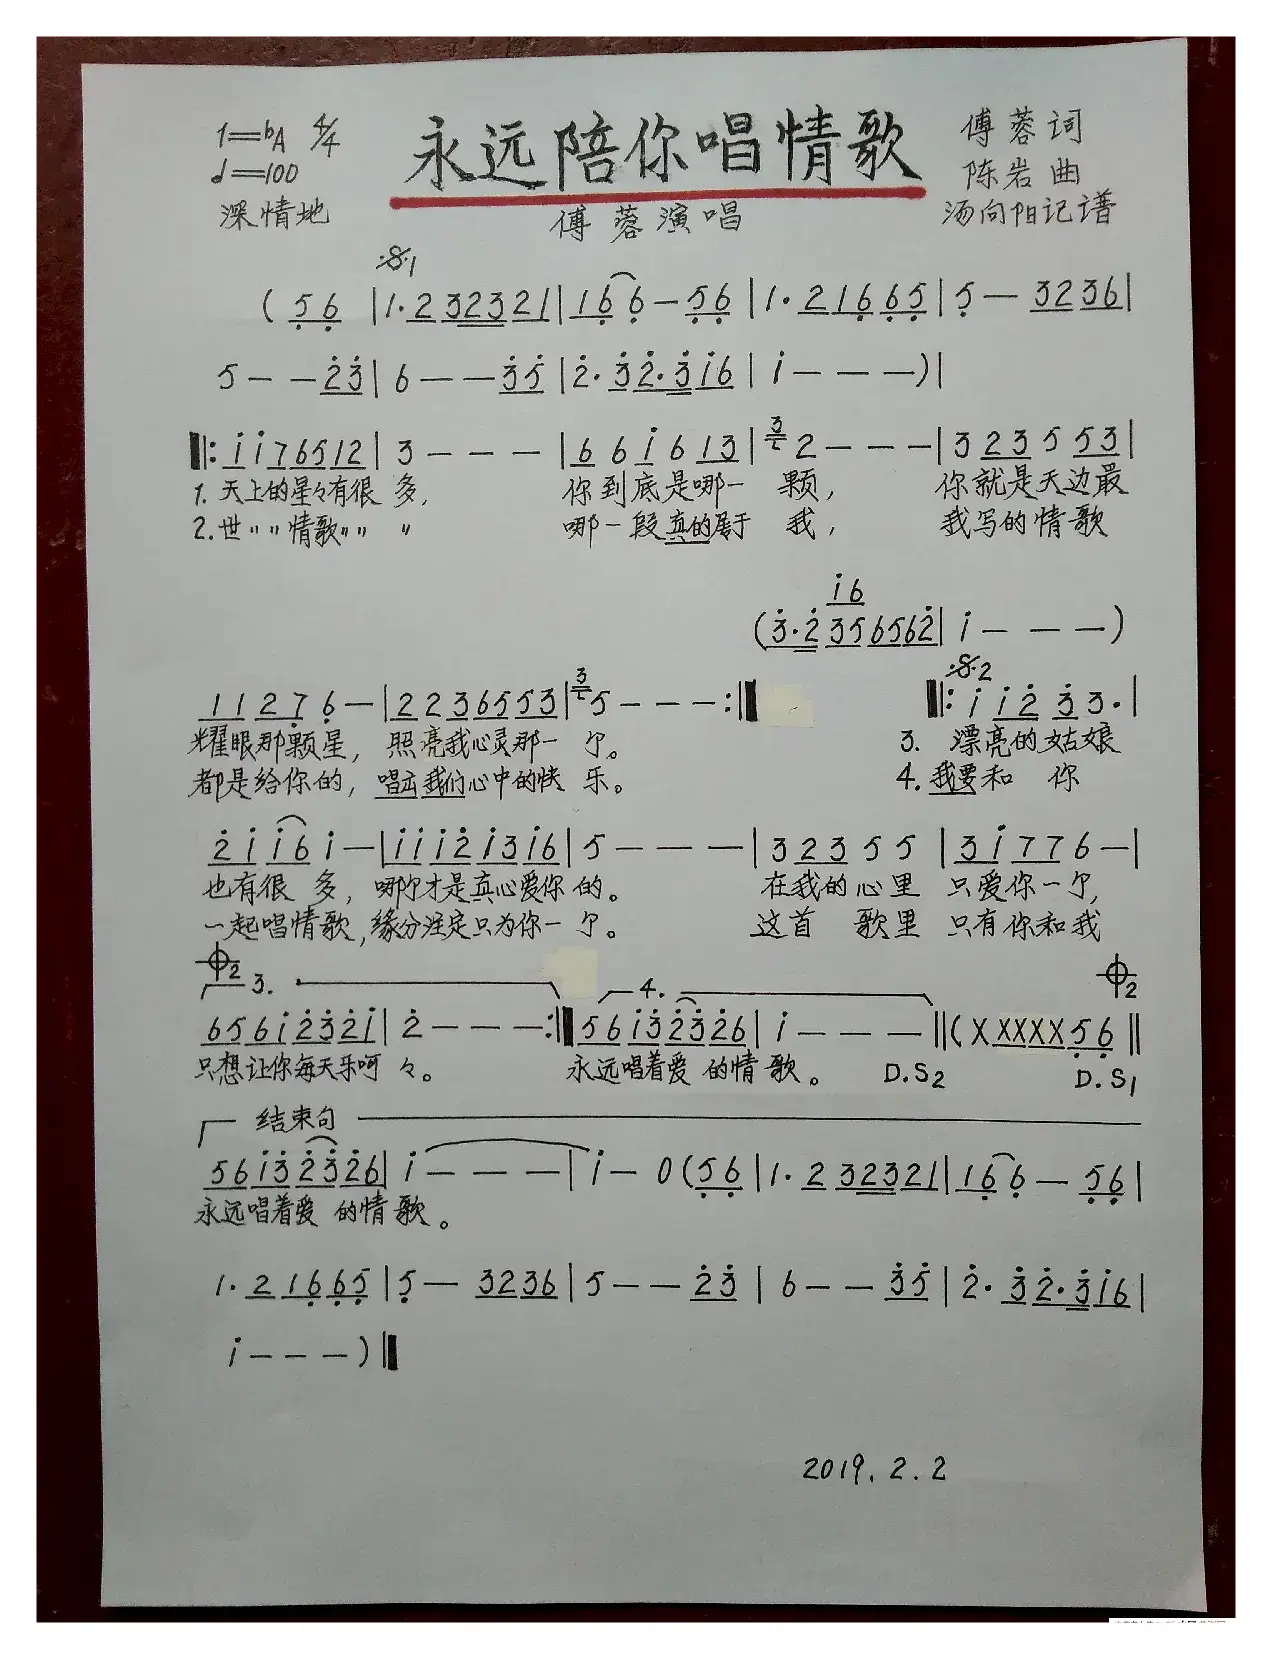 1=bA 4/4 永远陪你唱情歌 傅蓉词
♩=100 陈岩曲
深情地 傅蓉演唱 汤向阳记谱
𝄋1
( 5̣6̣ | 1·2 32321 | 16̣6̣ — 5̣6̣ | 1·2 16̣6̣5̣ | 5̣ — 3236 |
5 — — 2̇3̇ | 6 — — 3̇5̇ | 2̇·3̇ 2̇·3̇ 1̇6 | 1̇ — — — ) |
‖: 1̇1̇76512 | 3 — — — | 6 6 1̇ 6 13 | 3 2 — — — | 3 23 5 53 |
1. 天上的星々有很 多, 你到底是哪一 颗, 你就是天边最
2. 世〃〃情歌〃〃 〃 哪一段真的属于 我, 我写的情歌
1̇6
(3̇·2̇ 356562̇ | 1̇ — — — )
𝄋2
11 27̣ 6̣ — | 22365553 | 3 5 — — — :‖ ‖: 1̇ 1̇2̇ 3̇ 3· |
耀眼那颗星, 照亮我心灵那一 个。 3. 漂亮的姑娘
都是给你的, 唱出我们心中的快 乐。 4. 我要和 你
2̇1̇ 1̇6 1̇ — | 1̇1̇1̇2̇1̇31̇6 | 5 — — — | 3 23 5 5 | 31̇ 77 6 — |
也有很 多, 哪个才是真心爱你 的。 在我的心里 只爱你一个,
一起唱情歌, 缘分注定只为你一 个。 这首 歌里 只有你和我
𝄌2 3. 4. 𝄌2
6561̇2̇3̇2̇1̇ | 2̇ — — — :‖ 561̇3̇2̇3̇2̇6 | 1̇ — — — ‖ (X XXXX 5̣6̣ ‖
只想让你每天乐呵 々。 永远唱着爱 的情 歌。 D.S2 D.S1
结束句
561̇3̇2̇3̇2̇6 | 1̇ — — — | 1̇ — 0 (5̣6̣ | 1·2 32321 | 16̣6̣ — 5̣6̣ |
永远唱着爱 的情 歌。
1·2 16̣6̣5̣ | 5̣ — 3236 | 5 — — 2̇3̇ | 6 — — 3̇5̇ | 2̇·3̇ 2̇·3̇ 1̇6 |
1̇ — — — ) ‖
2019.2.2